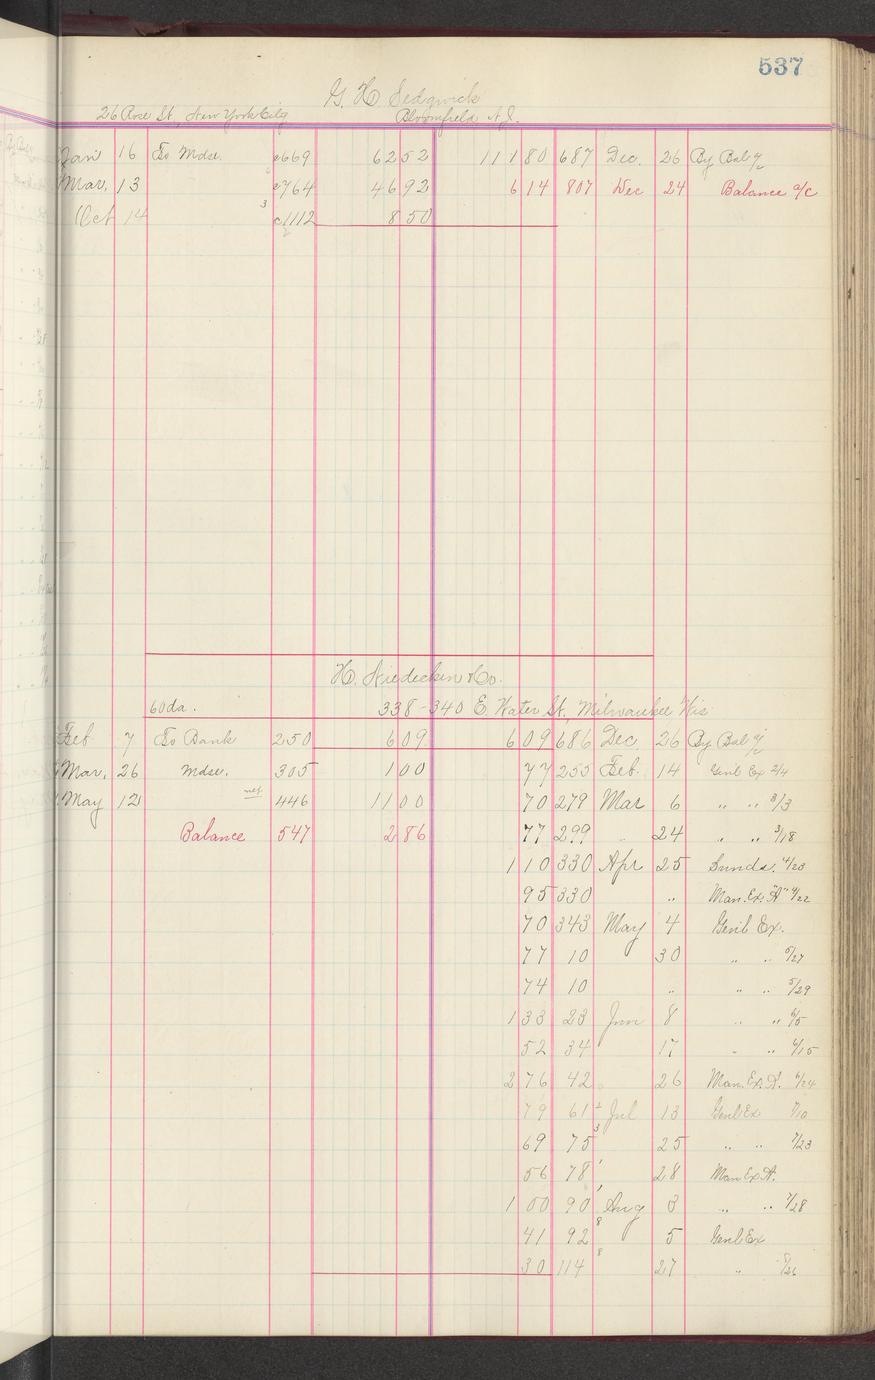 537
G. H. Sedgwick
26 Rose St., New York City Bloomfield N.J.
Jan 16 To Mdse. c669 62 52 111 80 687 Dec. 26 By Bal a/c
Mar. 13 c764 46 92 6 14 807 Dec 24 Balance a/c
Oct 14 c1112 8 50
H. Niedecken & Co.
60da. 338-340 E. Water St., Milwaukee Wis
Feb 7 To Bank 250 6 09 6 09 686 Dec. 26 By Bal a/c
Mar. 26 Mdse. 305 1 00 77 255 Feb. 14 Genl Ex 2/4
May 12 net 446 11 00 70 279 Mar 6 " " 3/3
Balance 547 2 86 77 299 " 24 " " 3/18
1 10 330 Apr 25 Sunds. 4/23
95 330 " Man. Ex. "A" 4/22
70 343 May 4 Genl Ex.
77 10 30 " " 5/27
74 10 " " " 5/29
1 33 23 Jun 8 " " 6/5
52 34 17 " " 6/15
2 76 42 " 26 Man. Ex. A. 6/24
79 61 Jul 13 Genl Ex 7/10
69 75 25 " " 7/23
56 78 28 Man Ex A.
1 00 90 Aug 3 " " 7/28
41 92 5 Genl Ex
30 114 27 " 8/26